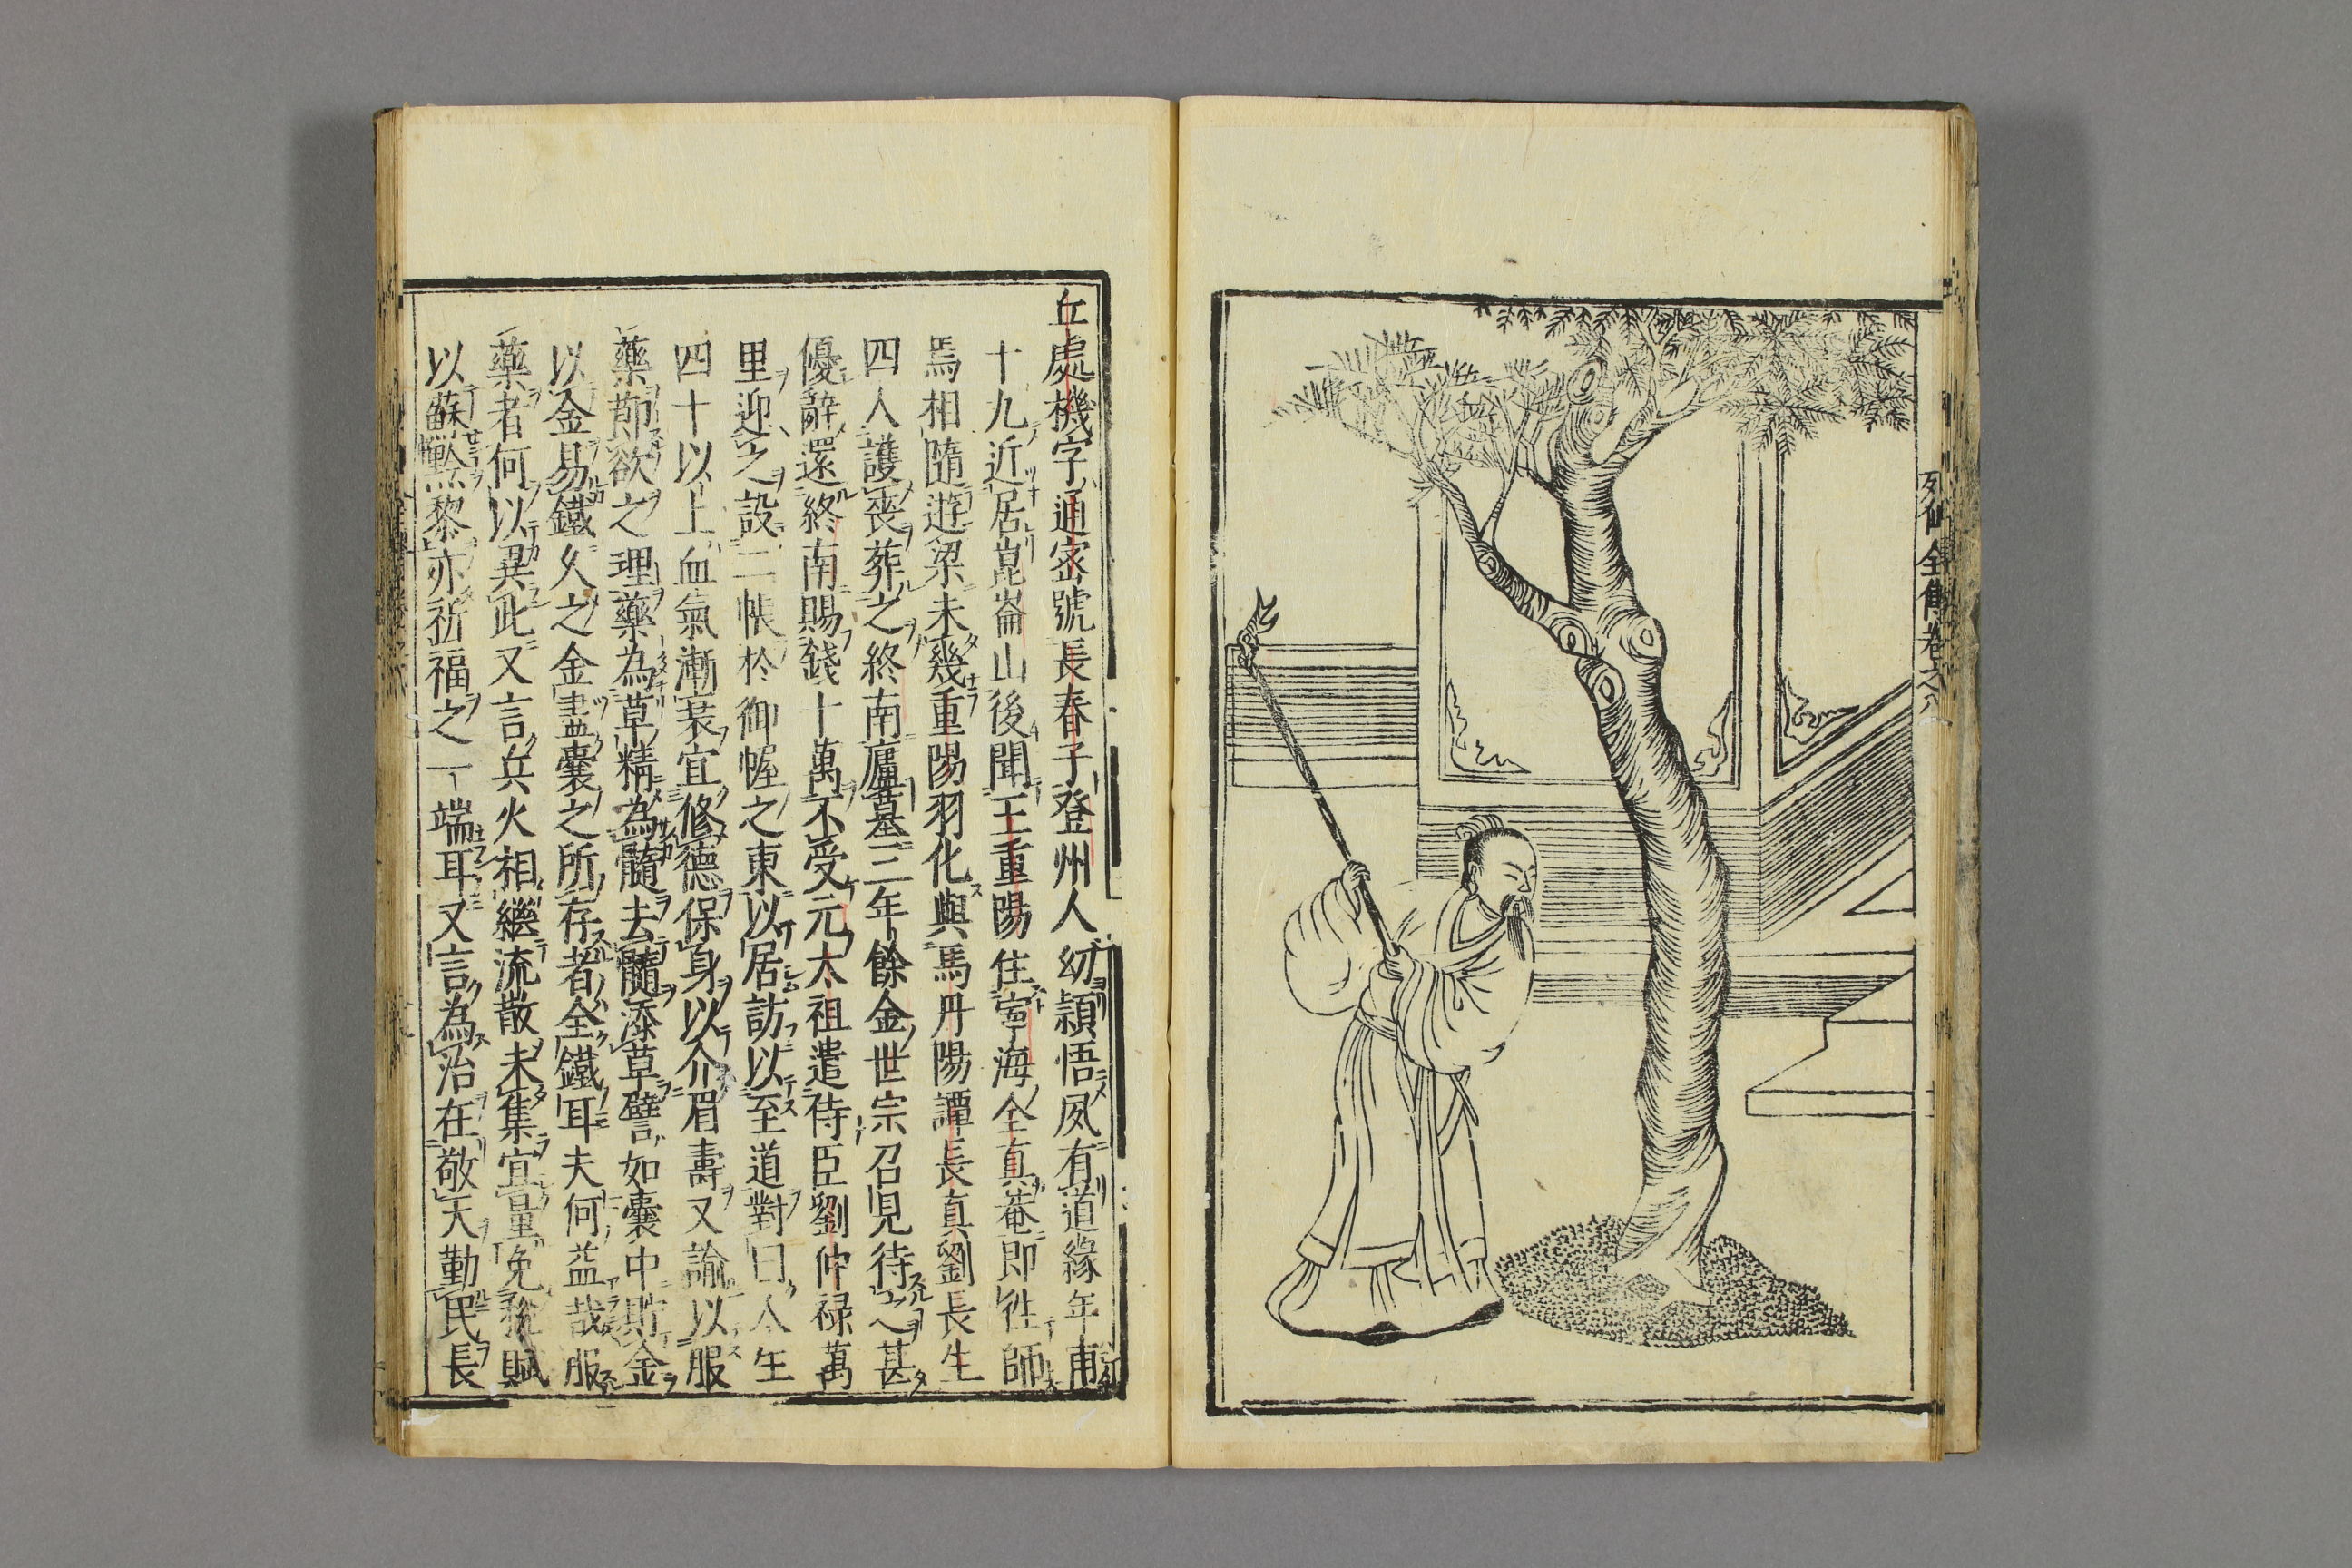 列仙全傳卷之八
丘處機字通密號長春子登州人幼穎悟夙有道緣年甫
十九近居崑崙山後聞王重陽住寧海全真菴即往師
焉相隨遊梁未幾重陽羽化與馬丹陽譚長真劉長生
四人護喪葬之終南廬墓三年餘金世宗召見待之甚
優辭還終南賜錢十萬不受元太祖遣侍臣劉仲祿萬
里迎之設二帳於御幄之東以居訪以至道對曰人生
四十以上血氣漸衰宜修德保身以介眉壽又諭以服
藥節欲之理藥為草精為髓去髓添草譬如囊中貯金
以金易鐵久之金盡囊之所存者全鐵耳夫何益哉服
藥者何以異此又言兵火相繼流散未集宜量免稅賦
以蘇黔黎亦祈福之一端耳又言為治在敬天勤民長